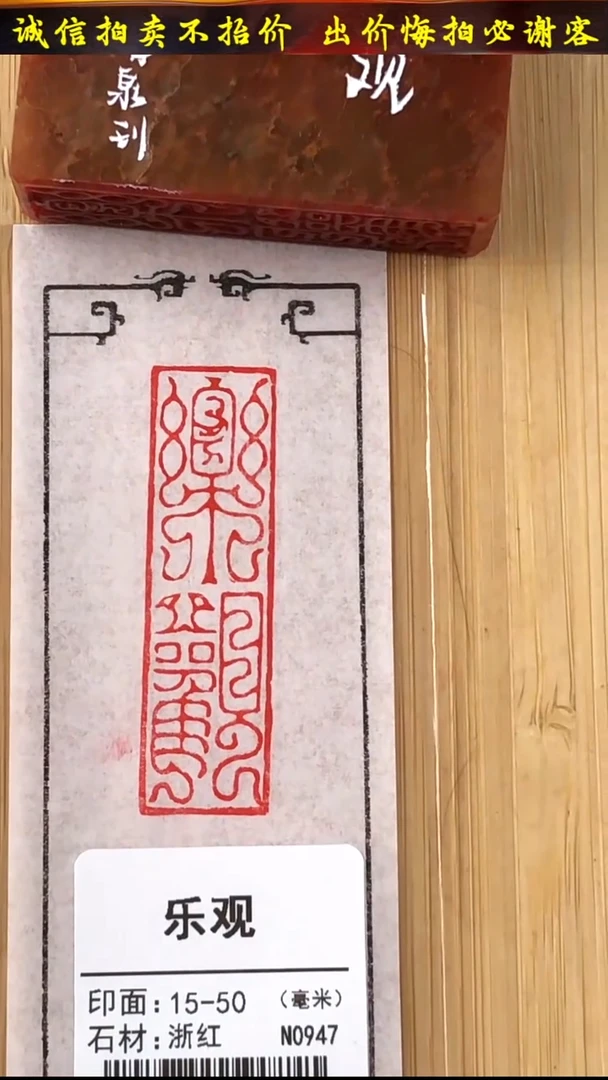 诚信拍卖不抬价 出价悔拍必谢客
观
泉刊
樂觀
乐观
印面：15-50 （毫米）
石材：浙红 NO947